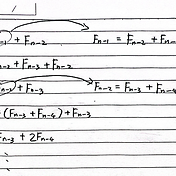 -1 + Fn-2 Fn-1 = Fn-2 + Fn-
n-2 + Fn-3 + Fn-2
n-2 + Fn-3 Fn-2 = Fn-3 + Fn-4
(Fn-3 + Fn-4) + Fn-3
Fn-3 + 2Fn-4